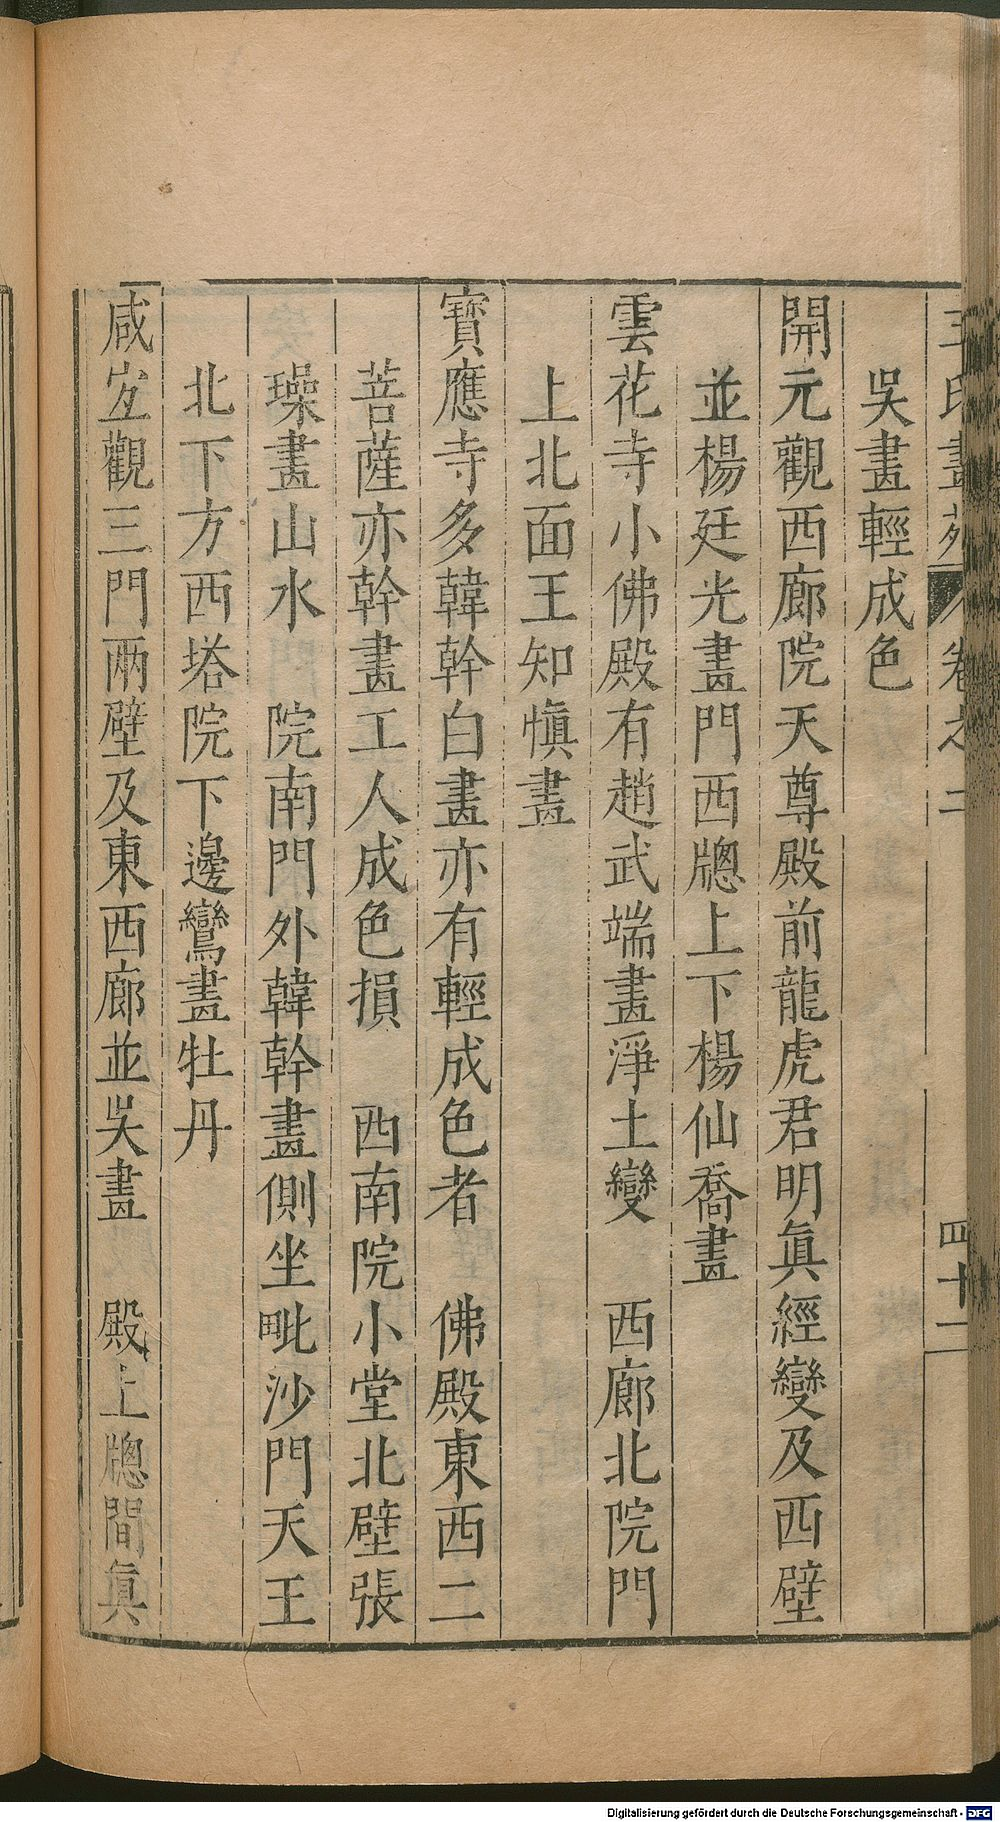 王氏畫苑 卷之二 四十一
吳畫輕成色
開元觀西廊院天尊殿前龍虎君明眞經變及西壁
並楊廷光畫門西牕上下楊仙喬畫
雲花寺小佛殿有趙武端畫淨土變　西廊北院門
上北面王知愼畫
寶應寺多韓幹白畫亦有輕成色者　佛殿東西二
菩薩亦幹畫工人成色損　西南院小堂北壁張
璪畫山水　院南門外韓幹畫側坐毗沙門天王
北下方西塔院下邊鸞畫牡丹
咸宜觀三門兩壁及東西廊並吳畫　殿上牕間眞
Digitalisierung gefördert durch die Deutsche Forschungsgemeinschaft - DFG